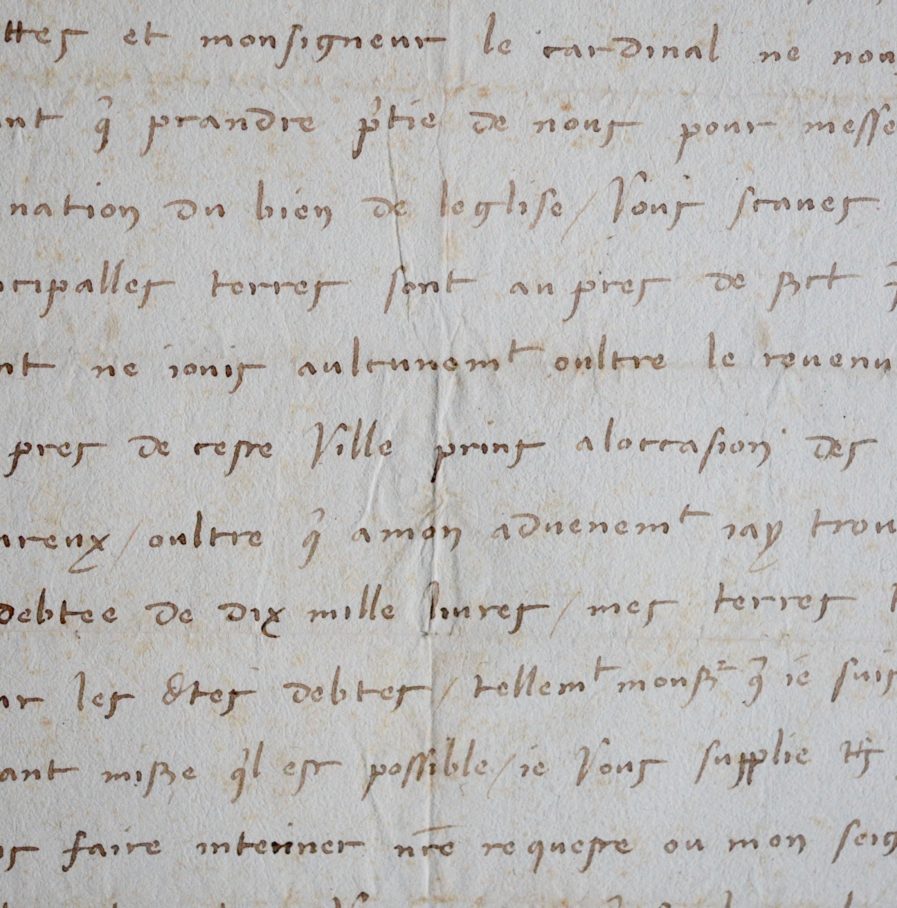 ttes et monsigneur le cardinal ne nou
ant q̃ prandre p̃tie de nous pour messe
nation du bien de leglise / Vous scaues
ncipalles terres sont au pres de
nt ne iouis aulcunemt oultre le reuenu
pres de ceste Ville prins aloccasion des
ureux / oultre q̃ amon aduenemt iay trou
debtee de dix mille liures / mes terres
ur les dtes debtes / tellemt monsr q̃ ie suis
ant misʒe q̃l est possible / ie Vous supplie
os faire interiner nr̃e requeste ou mon seig